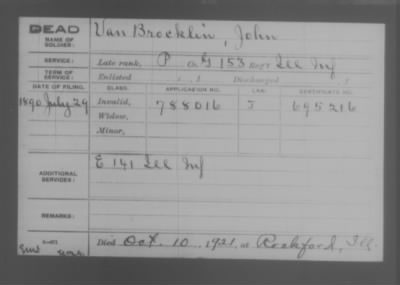 DEAD
NAME OF SOLDIER: Van Brocklin, John
SERVICE: Late rank, P Co G 153 Reg't Ill Inf
TERM OF SERVICE: Enlisted , 1 Discharged , 1
DATE OF FILING. CLASS. APPLICATION NO. LAW. CERTIFICATE NO.
1890 July 29 Invalid, 788016 J 695216
Widow,
Minor,
ADDITIONAL SERVICES: E 141 Ill Inf
REMARKS:
Died Oct. 10, 1921, at Rockford, Ill.